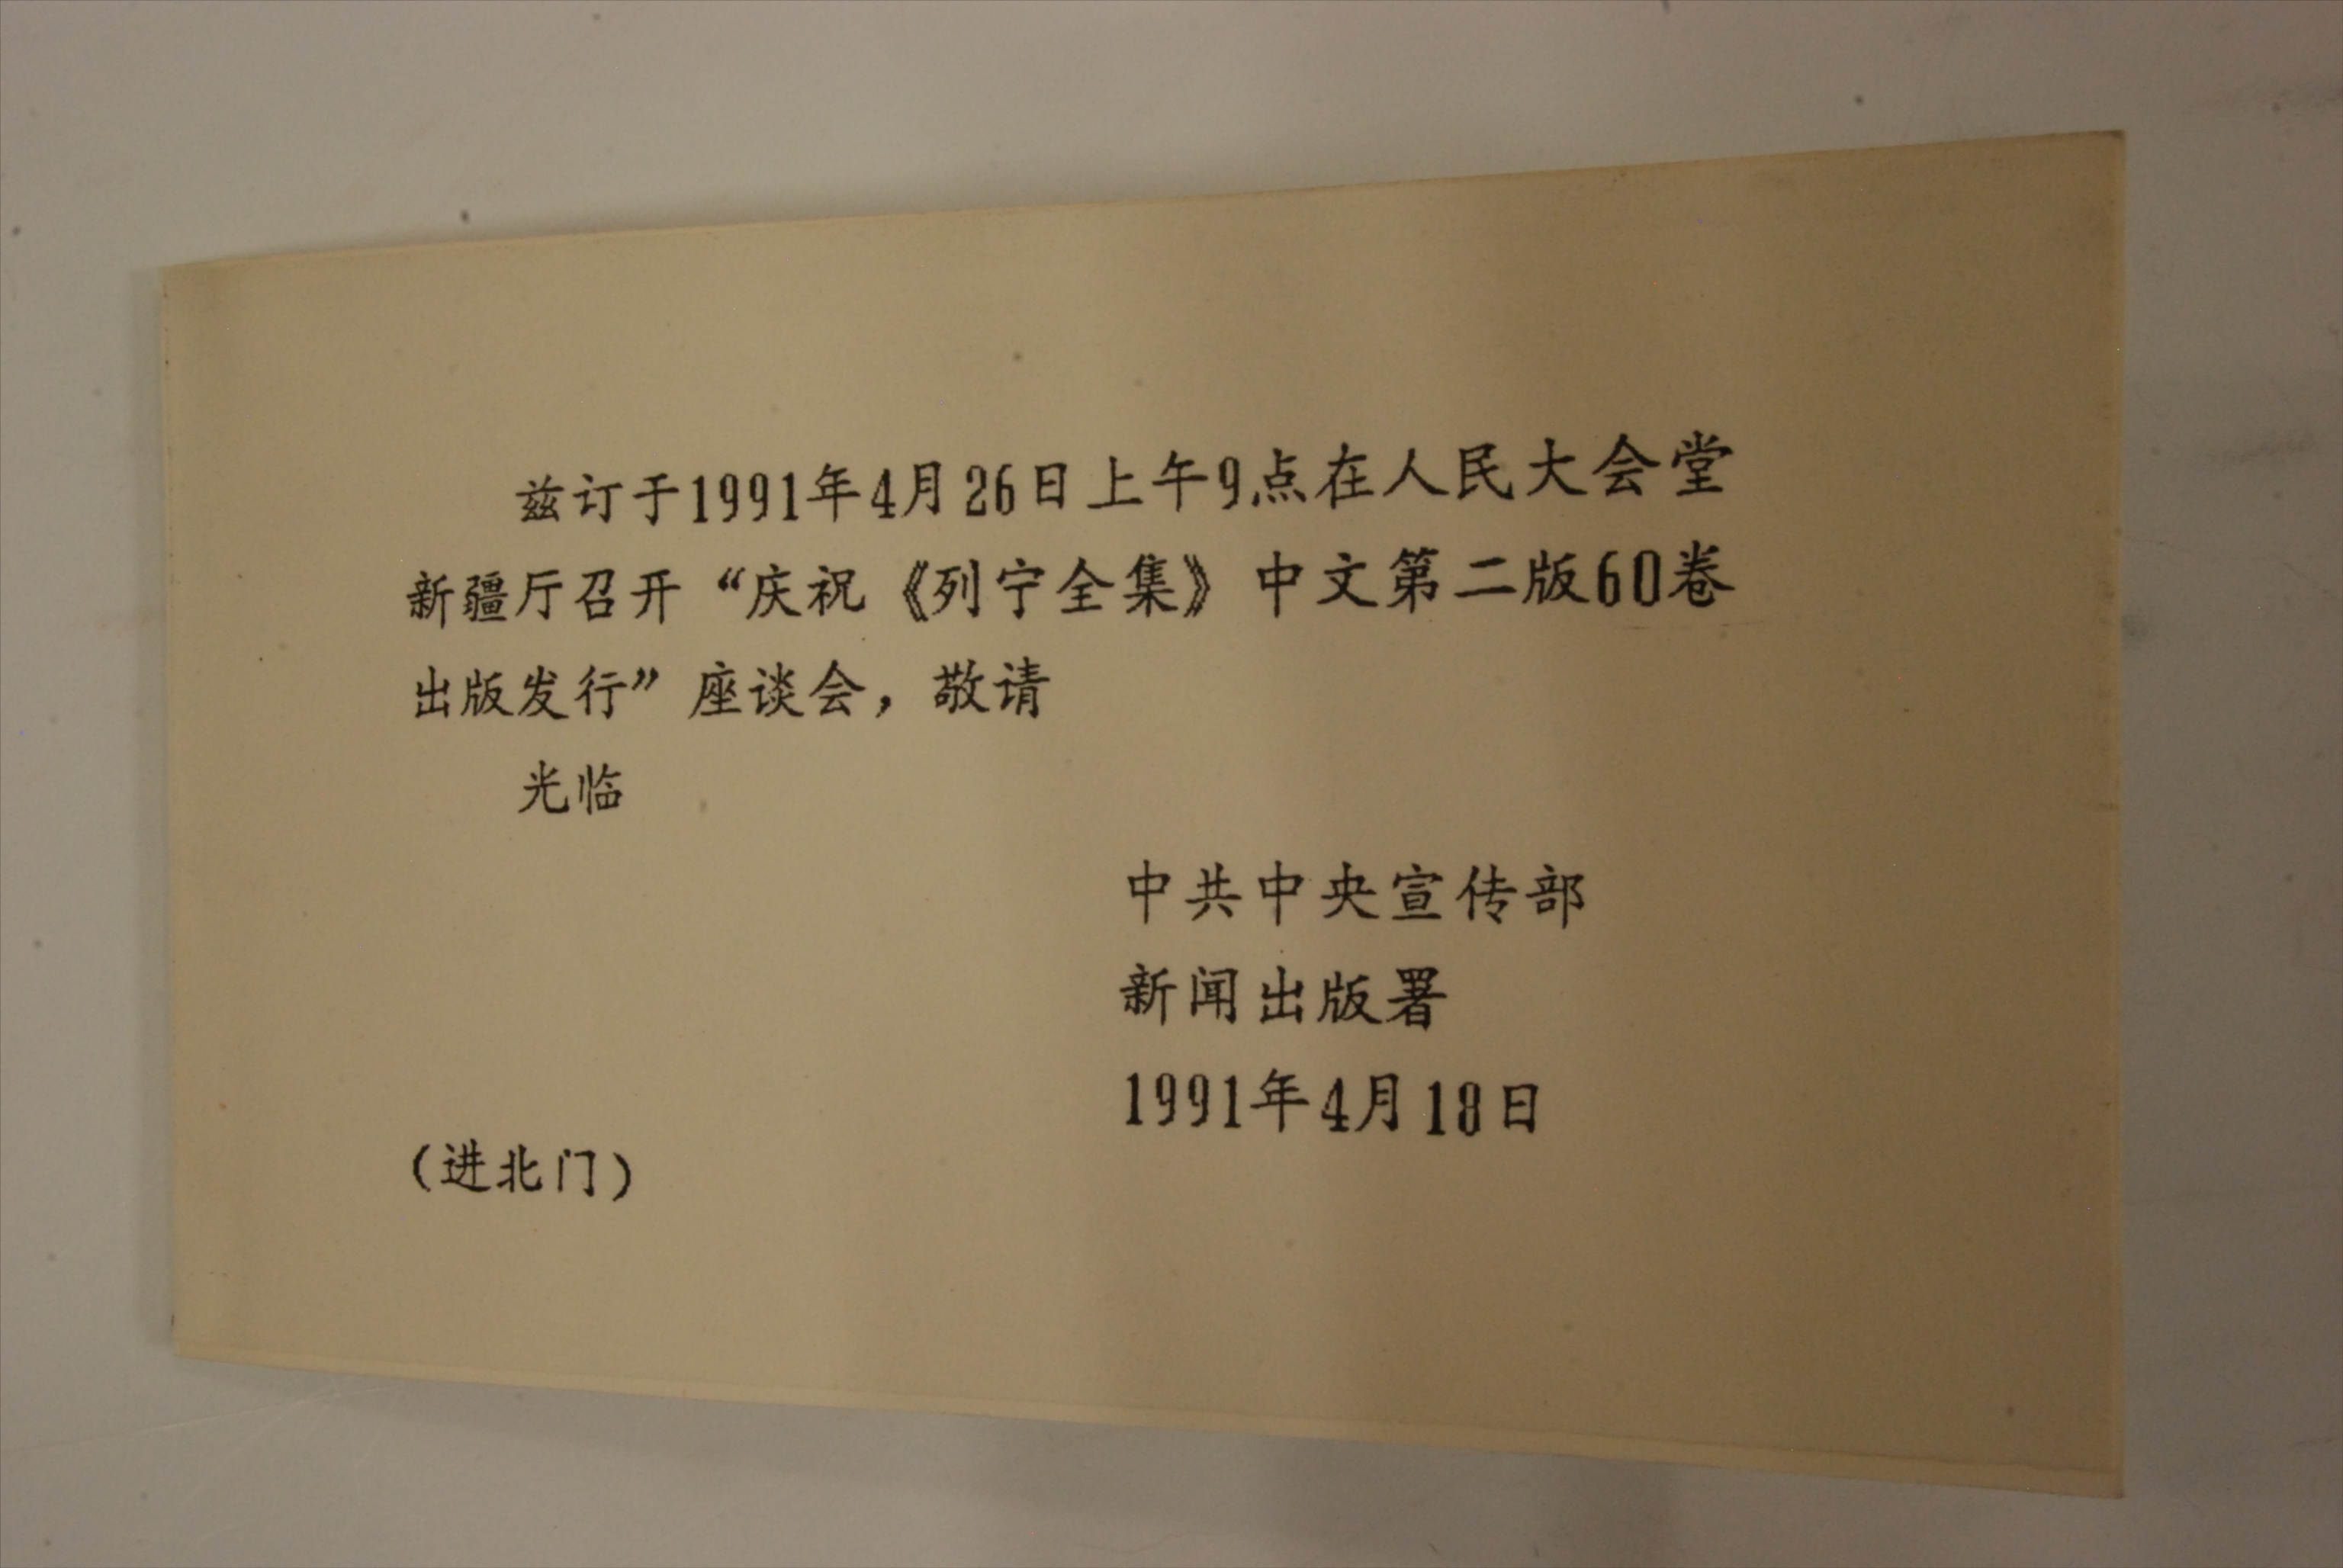 兹订于1991年4月26日上午9点在人民大会堂
新疆厅召开“庆祝《列宁全集》中文第二版60卷
出版发行”座谈会，敬请
光临
中共中央宣传部
新闻出版署
1991年4月18日
(进北门)